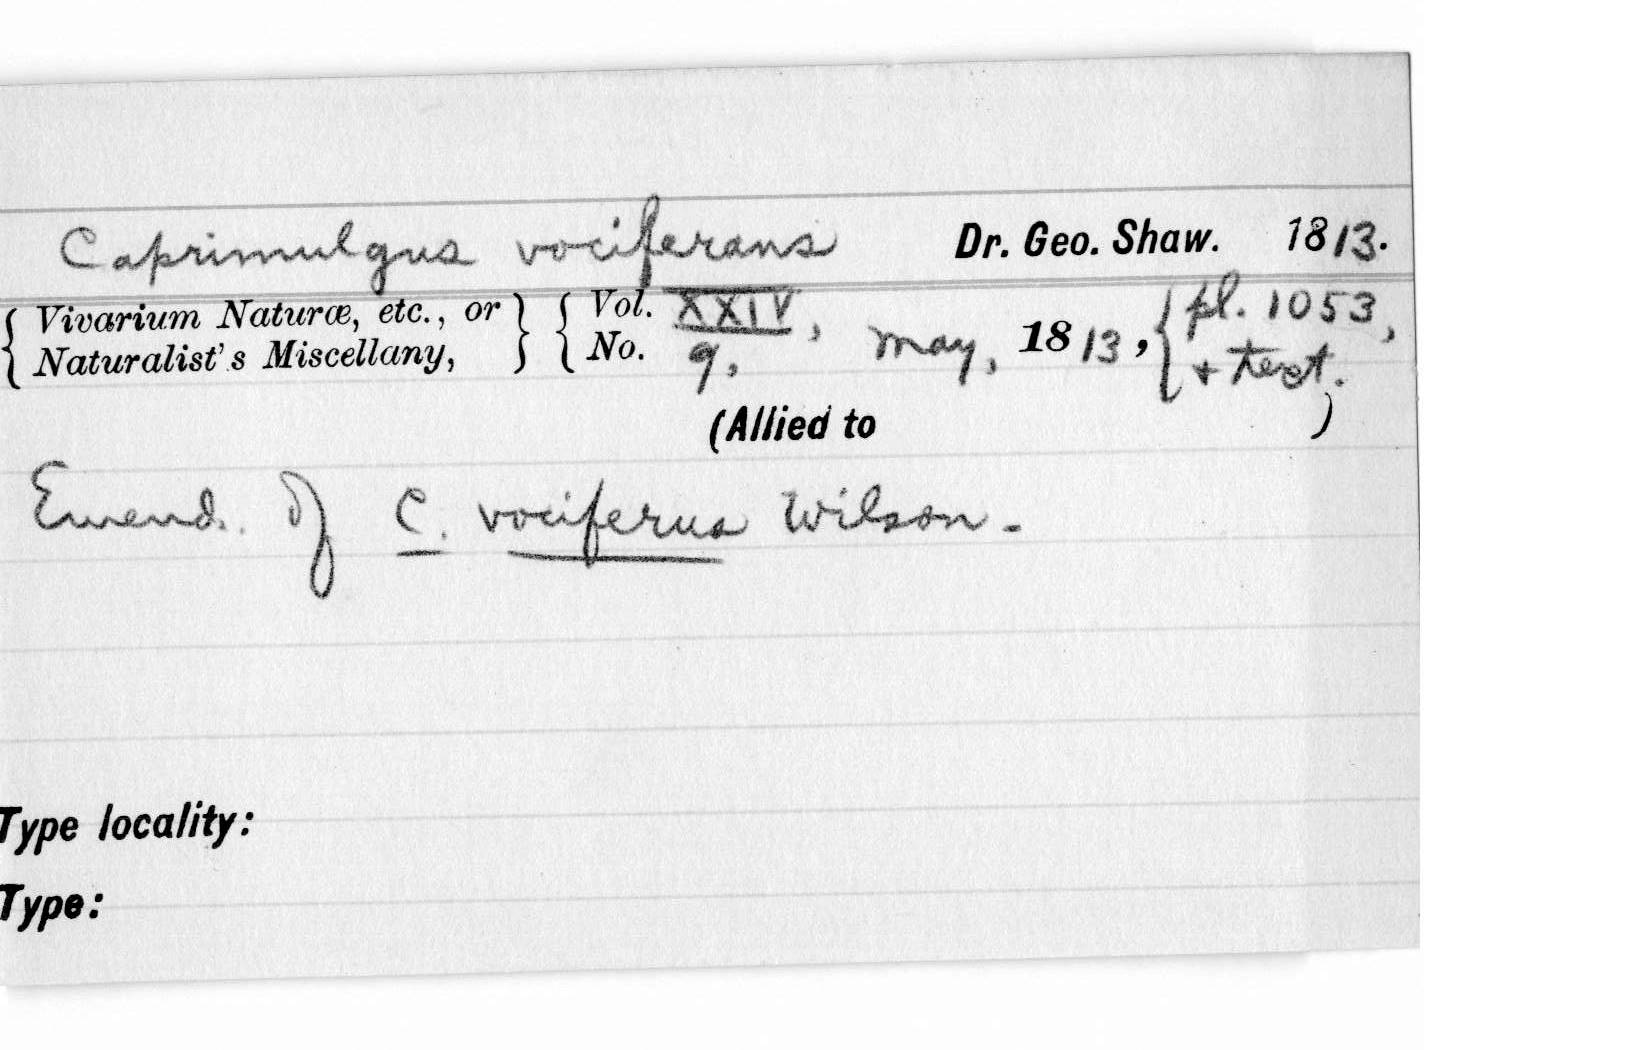 Caprimulgus vociferans Dr. Geo. Shaw. 1813.
{ Vivarium Naturæ, etc., or } { Vol. XXIV, May, 1813, { pl. 1053,
{ Naturalist's Miscellany, } { No. 9, { + text.
(Allied to )
Emend. of C. vociferus Wilson.
Type locality:
Type: